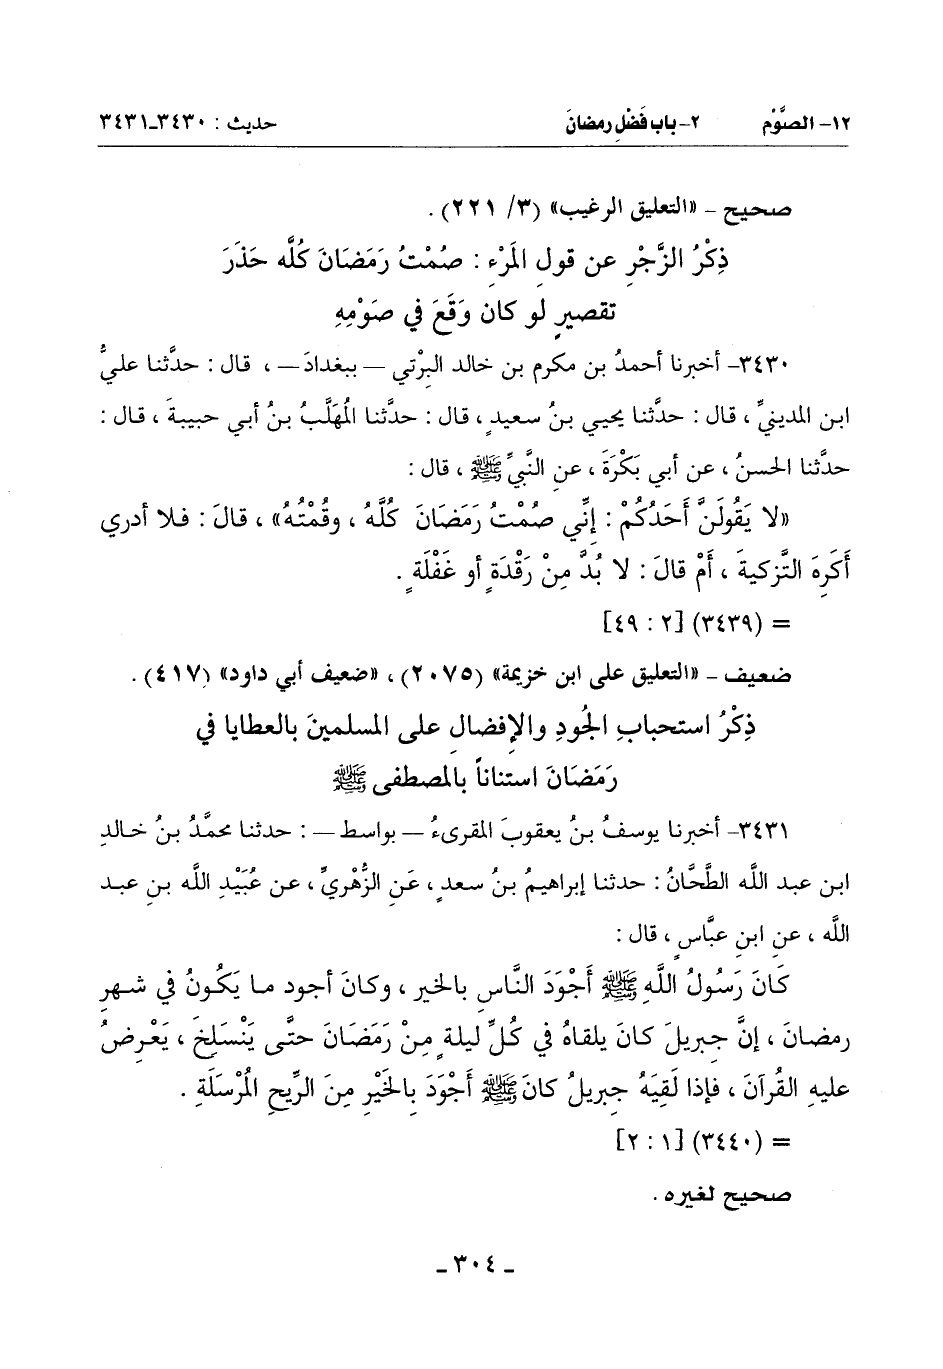 ١٢- الصَّوْم ٢- باب فَضْلِ رمضانَ حديث : ٣٤٣٠-٣٤٣١
صحيح - «التعليق الرغيب» (٣/ ٢٢١) .
ذِكْرُ الزَّجْرِ عن قولِ المَرْءِ : صُمْتُ رَمَضَانَ كُلَّه حَذَرَ
تقصيرٍ لو كان وَقَعَ في صَوْمِهِ
٣٤٣٠- أخبرنا أحمدُ بن مكرم بن خالد البِرْتي — ببغدادَ — ، قال : حدَّثنا عليُّ
ابن المدينيِّ ، قال : حدَّثنا يحيى بنُ سعيدٍ ، قال : حدَّثنا المُهَلَّبُ بنُ أبي حبيبةَ ، قال :
حدَّثنا الحسنُ ، عن أبي بَكْرَةَ ، عنِ النَّبيِّ ﷺ ، قال :
«لا يَقُولَنَّ أَحَدُكُمْ : إنِّي صُمْتُ رَمَضَانَ كُلَّهُ ، وقُمْتُهُ» ، قالَ : فلا أدري
أَكَرِهَ التَّزكيةَ ، أمْ قالَ : لا بُدَّ مِنْ رَقْدَةٍ أو غَفْلَةٍ .
= (٣٤٣٩) [٢ : ٤٩]
ضعيف - «التعليق على ابن خزيمة» (٢٠٧٥) ، «ضعيف أبي داود» (٤١٧) .
ذِكْرُ استحبابِ الجُودِ والإفضالِ على المسلمينَ بالعطايا في
رَمَضَانَ استناناً بالمصطفى ﷺ
٣٤٣١- أخبرنا يوسفُ بنُ يعقوبَ المقرىءُ — بواسط — : حدثنا محمَّدُ بنُ خالدِ
ابن عبد الله الطَّحَّانُ : حدثنا إبراهيمُ بنُ سعدٍ ، عَنِ الزُّهْريِّ ، عن عُبَيْدِ الله بنِ عبد
الله ، عنِ ابنِ عبَّاسٍ ، قال :
كَانَ رَسُولُ اللَّهِ ﷺ أَجْوَدَ النَّاسِ بالخيرِ ، وكانَ أجود ما يَكُونُ في شهرِ
رمضانَ ، إنَّ جبريلَ كانَ يلقاهُ في كُلِّ ليلةٍ مِنْ رَمَضَانَ حتَّى يَنْسَلِخَ ، يَعْرِضُ
عليهِ القُرآنَ ، فإذا لَقِيَهُ جبريلُ كانَ ﷺ أَجْوَدَ بِالخَيْرِ مِنَ الرِّيحِ المُرْسَلَةِ .
= (٣٤٤٠) [١ : ٢]
صحيح لغيره .
- ٣٠٤ -